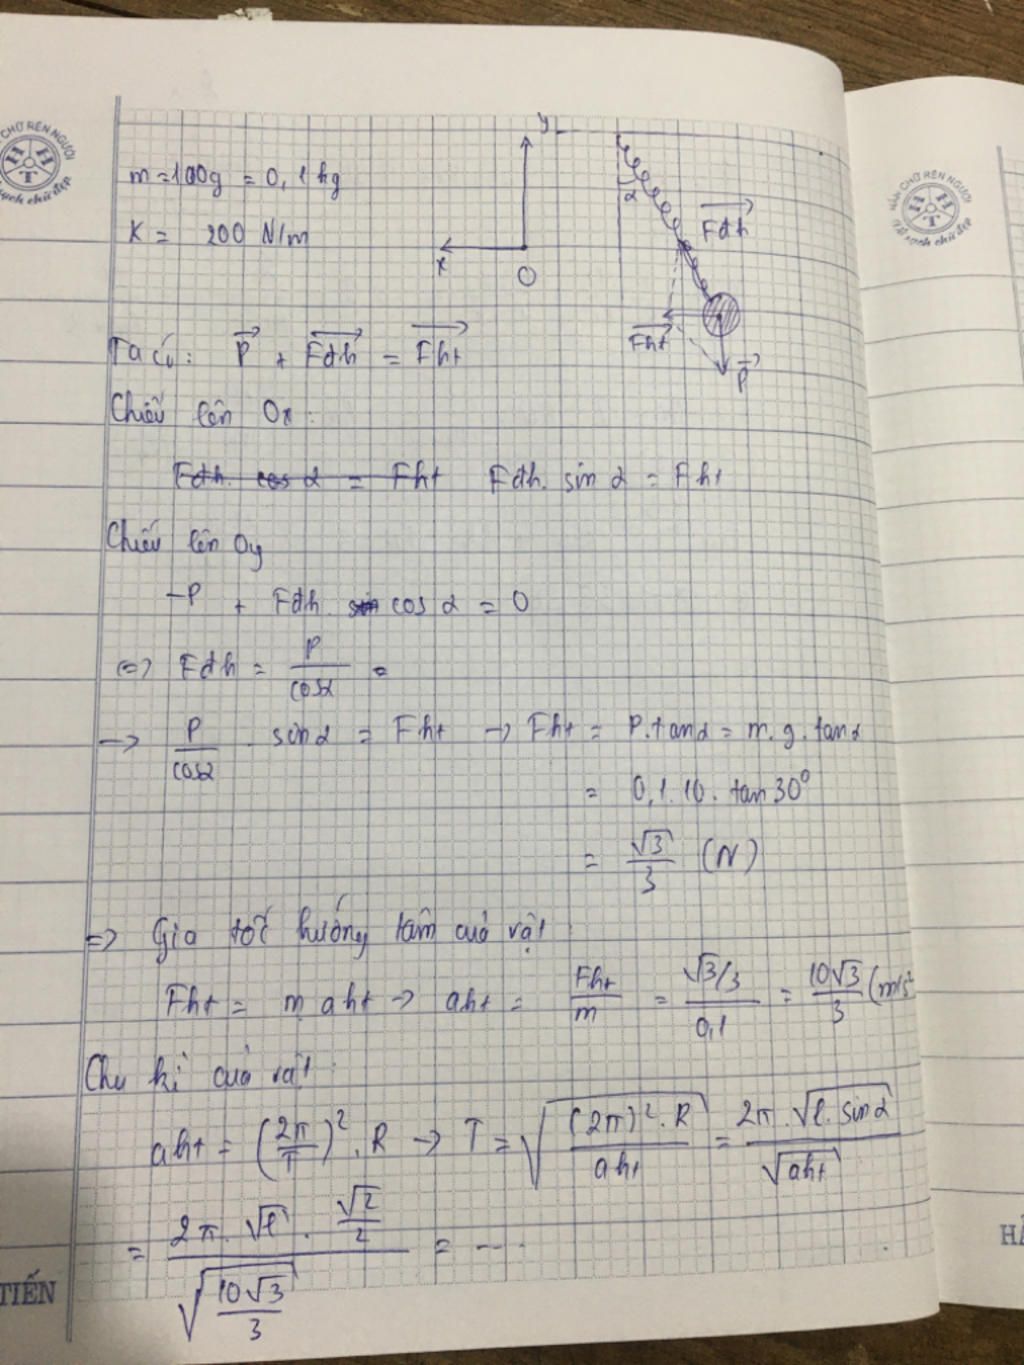 CHỮ RÈN NGƯỜI
H H T
sạch chữ đẹp
m = 100g = 0,1 kg
K = 200 N/m
y
x
O
α
Fđh
Fht
P
Ta có: P + Fđh = Fht
Chiếu lên Ox:
Fđh. cos α = Fht Fđh. sin α = Fht
Chiếu lên Oy
-P + Fđh. sin cos α = 0
<=> Fđh = P/cosα =
-> P/cosα . sinα = Fht -> Fht = P.tanα = m.g.tanα
= 0,1.10. tan 30°
= √3/3 (N)
=> Gia tốc hướng tâm của vật
Fht = m aht -> aht = Fht/m = (√3/3)/0,1 = 10√3/3 (m/s²
Chu kì của vật:
aht = (2π/T)² . R -> T = √((2π)². R/aht) = 2π . √(l. sinα)/√aht
= (2π. √l . √2/2)/√(10√3/3) = ....
TIẾN
NÂN CHỮ RÈN NGƯỜI
H H T
Vở sạch chữ đẹp